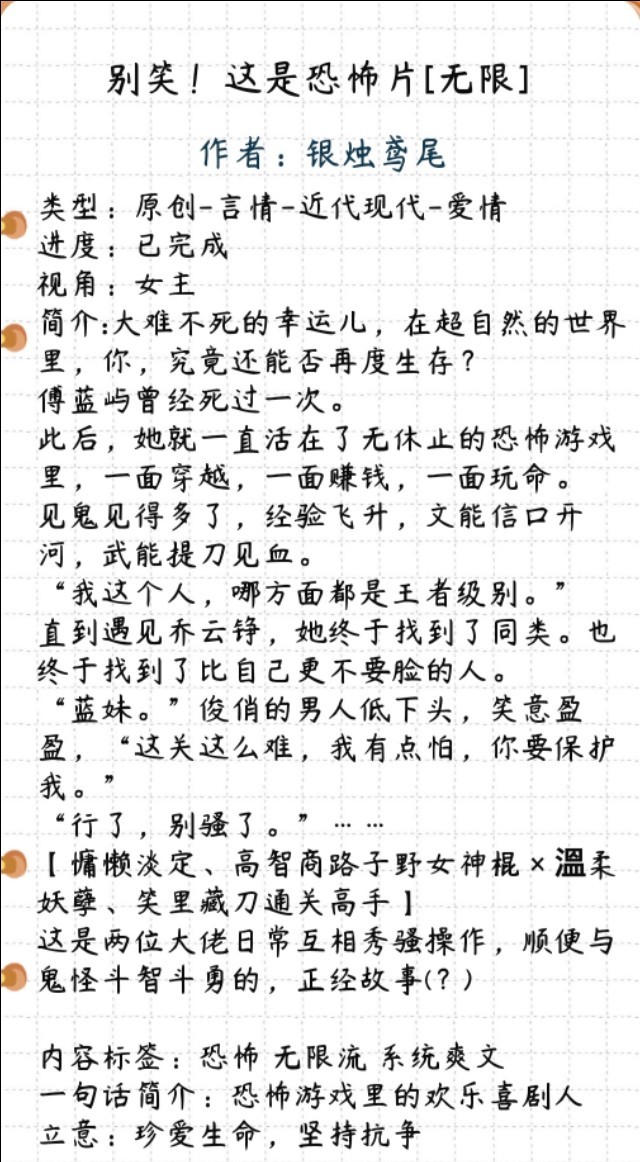 别笑！这是恐怖片[无限]
作者：银烛鸢尾
类型：原创-言情-近代现代-爱情
进度：已完成
视角：女主
简介:大难不死的幸运儿，在超自然的世界
里，你，究竟还能否再度生存？
傅蓝屿曾经死过一次。
此后，她就一直活在了无休止的恐怖游戏
里，一面穿越，一面赚钱，一面玩命。
见鬼见得多了，经验飞升，文能信口开
河，武能提刀见血。
“我这个人，哪方面都是王者级别。”
直到遇见乔云铮，她终于找到了同类。也
终于找到了比自己更不要脸的人。
“蓝妹。”俊俏的男人低下头，笑意盈
盈，“这关这么难，我有点怕，你要保护
我。”
“行了，别骚了。”……
【慵懒淡定、高智商路子野女神棍×溫柔
妖孽、笑里藏刀通关高手】
这是两位大佬日常互相秀骚操作，顺便与
鬼怪斗智斗勇的，正经故事(？)
内容标签：恐怖 无限流 系统爽文
一句话简介：恐怖游戏里的欢乐喜剧人
立意：珍爱生命，坚持抗争